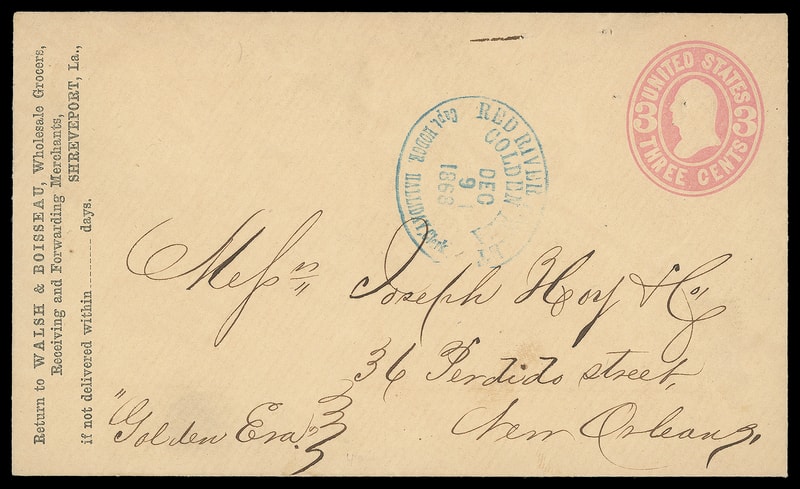 Return to WALSH & BOISSEAU, Wholesale Grocers,
Receiving and Forwarding Merchants,
SHREVEPORT, La.,
if not delivered within ........ days.
RED RIVER
GOLDEN
DEC
9
1868
Capt. HODGE HALLIDAY, Clerk
UNITED STATES
3 3
THREE CENTS
Messrs Joseph Hoy & Co
36 Perdido street,
"Golden Era" New Orleans,